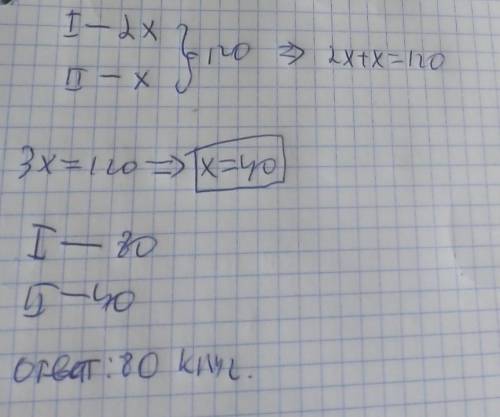 I — 2x } 120 => 2x+x=120
II — x
3x=120 => x=40
I — 80
II — 40
ответ: 80 книг.